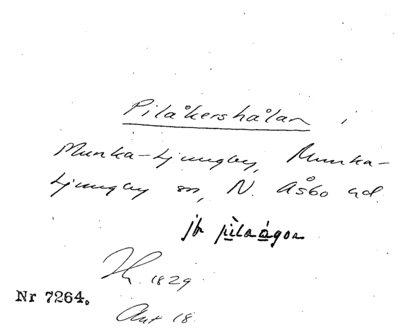 Pilåkershålan i
Munka-Ljungby, Munka-
Ljungby sn, N. Åsbo hd.
jb
1829
Nr 7264.
18